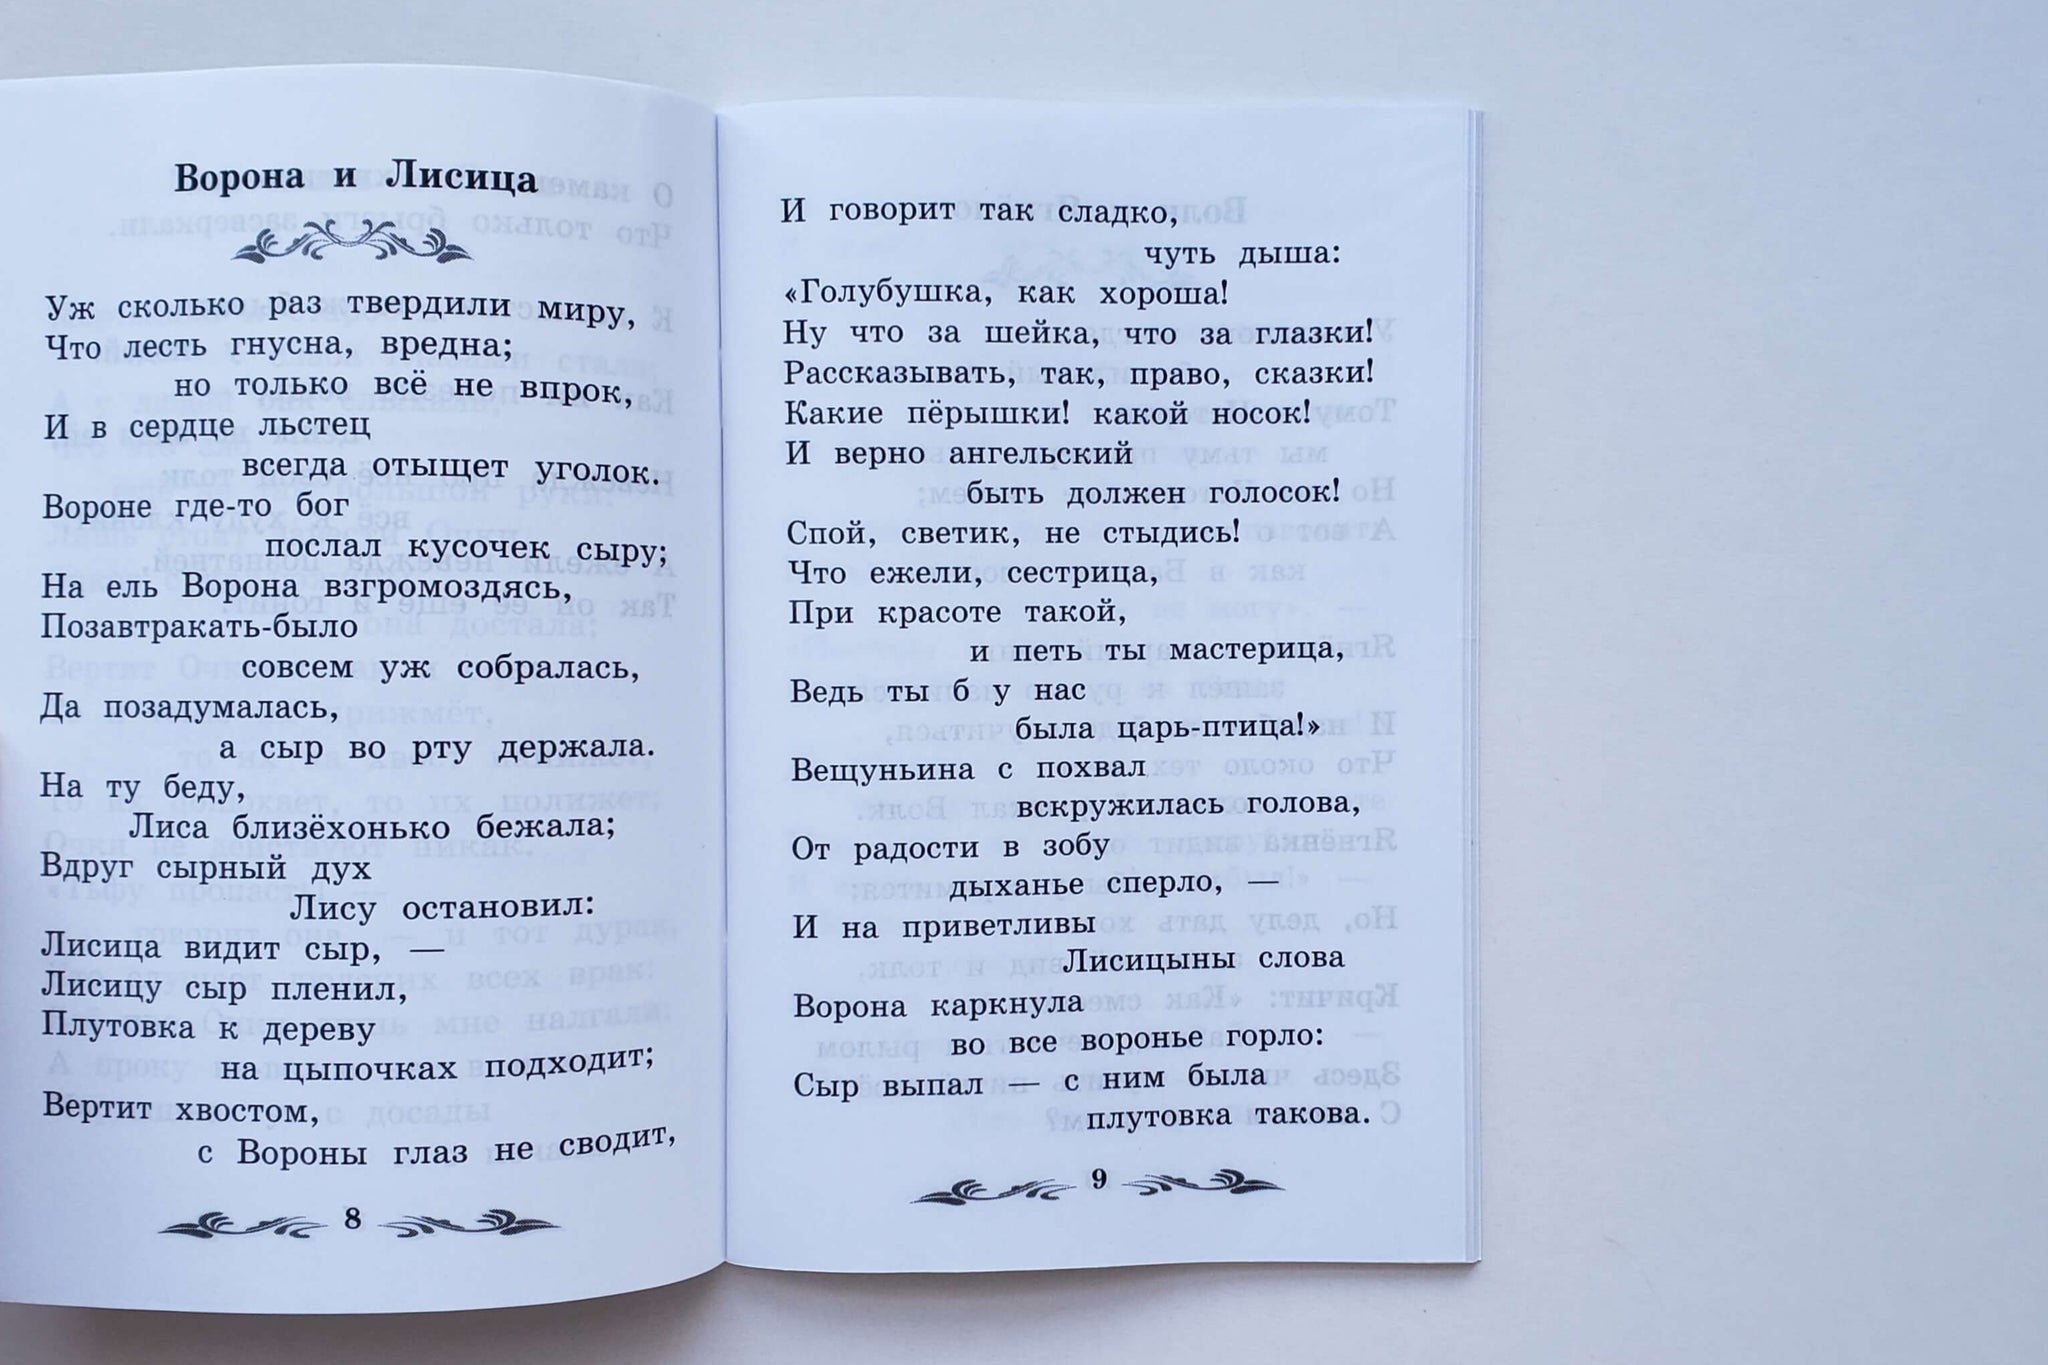 Ворона и Лисица
Уж сколько раз твердили миру,
Что лесть гнусна, вредна;
но только всё не впрок,
И в сердце льстец
всегда отыщет уголок.
Вороне где-то бог
послал кусочек сыру;
На ель Ворона взгромоздясь,
Позавтракать-было
совсем уж собралась,
Да позадумалась,
а сыр во рту держала.
На ту беду,
Лиса близёхонько бежала;
Вдруг сырный дух
Лису остановил:
Лисица видит сыр, —
Лисицу сыр пленил,
Плутовка к дереву
на цыпочках подходит;
Вертит хвостом,
с Вороны глаз не сводит,
8
И говорит так сладко,
чуть дыша:
«Голубушка, как хороша!
Ну что за шейка, что за глазки!
Рассказывать, так, право, сказки!
Какие пёрышки! какой носок!
И верно ангельский
быть должен голосок!
Спой, светик, не стыдись!
Что ежели, сестрица,
При красоте такой,
и петь ты мастерица,
Ведь ты б у нас
была царь-птица!»
Вещуньина с похвал
вскружилась голова,
От радости в зобу
дыханье сперло, —
И на приветливы
Лисицыны слова
Ворона каркнула
во все воронье горло:
Сыр выпал — с ним была
плутовка такова.
9